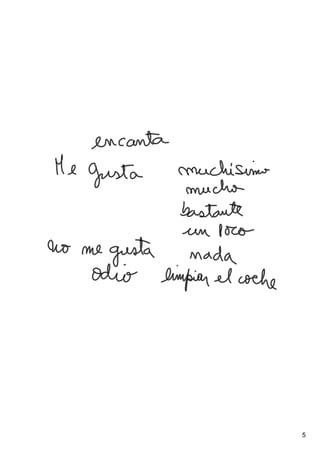 encanta
Me gusta muchísimo
mucho
bastante
un poco
no me gusta nada
odio limpiar el coche
5